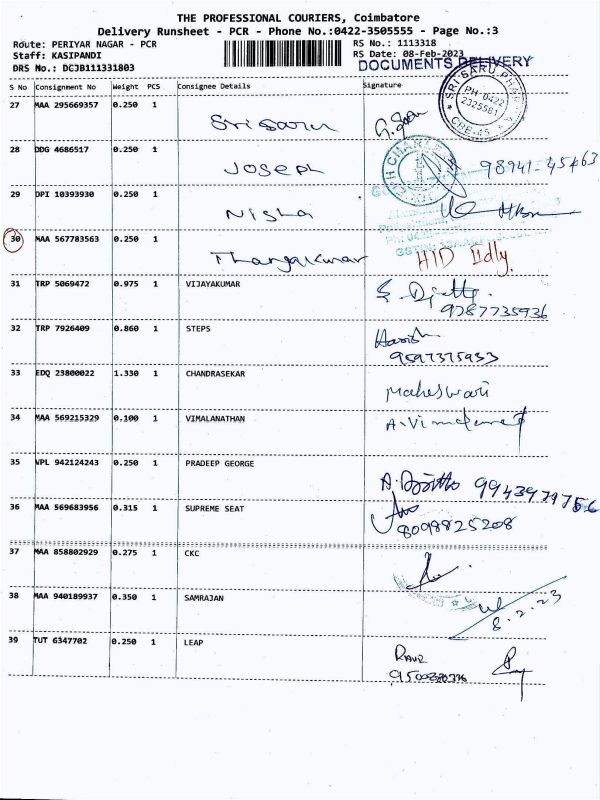 THE PROFESSIONAL COURIERS, Coimbatore
Delivery Runsheet - PCR - Phone No.:0422-3505555 - Page No.:3
Route: PERIYAR NAGAR - PCR RS No.: 1113318
Staff: KASIPANDI RS Date: 08-Feb-2023
DRS No.: DCJB111331803 DOCUMENTS DELIVERY
S No Consignment No Weight PCS Consignee Details Signature
27 MAA 295669357 0.250 1 Sri Saru
SRI SARU PH 0422 2325581 CBE-45
28 DDG 4686517 0.250 1 Joseph
29 DPI 10393930 0.250 1 Nisha
30 MAA 567783563 0.250 1 Thangakumar
31 TRP 5069472 0.975 1 VIJAYAKUMAR
9787735936
32 TRP 7926409 0.860 1 STEPS Harish
9597375933
33 EDQ 23800022 1.330 1 CHANDRASEKAR Maheswari
34 MAA 569215329 0.100 1 VIMALANATHAN
35 VPL 942124243 0.250 1 PRADEEP GEORGE
36 MAA 569683956 0.315 1 SUPREME SEAT
8098825208
37 MAA 858802929 0.275 1 CKC
38 MAA 940189937 0.350 1 SAMRAJAN
8.2.23
39 TUT 6347702 0.250 1 LEAP